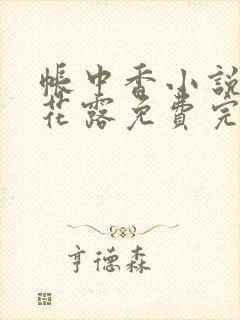 帳中香小說
花露免費完
亨德森